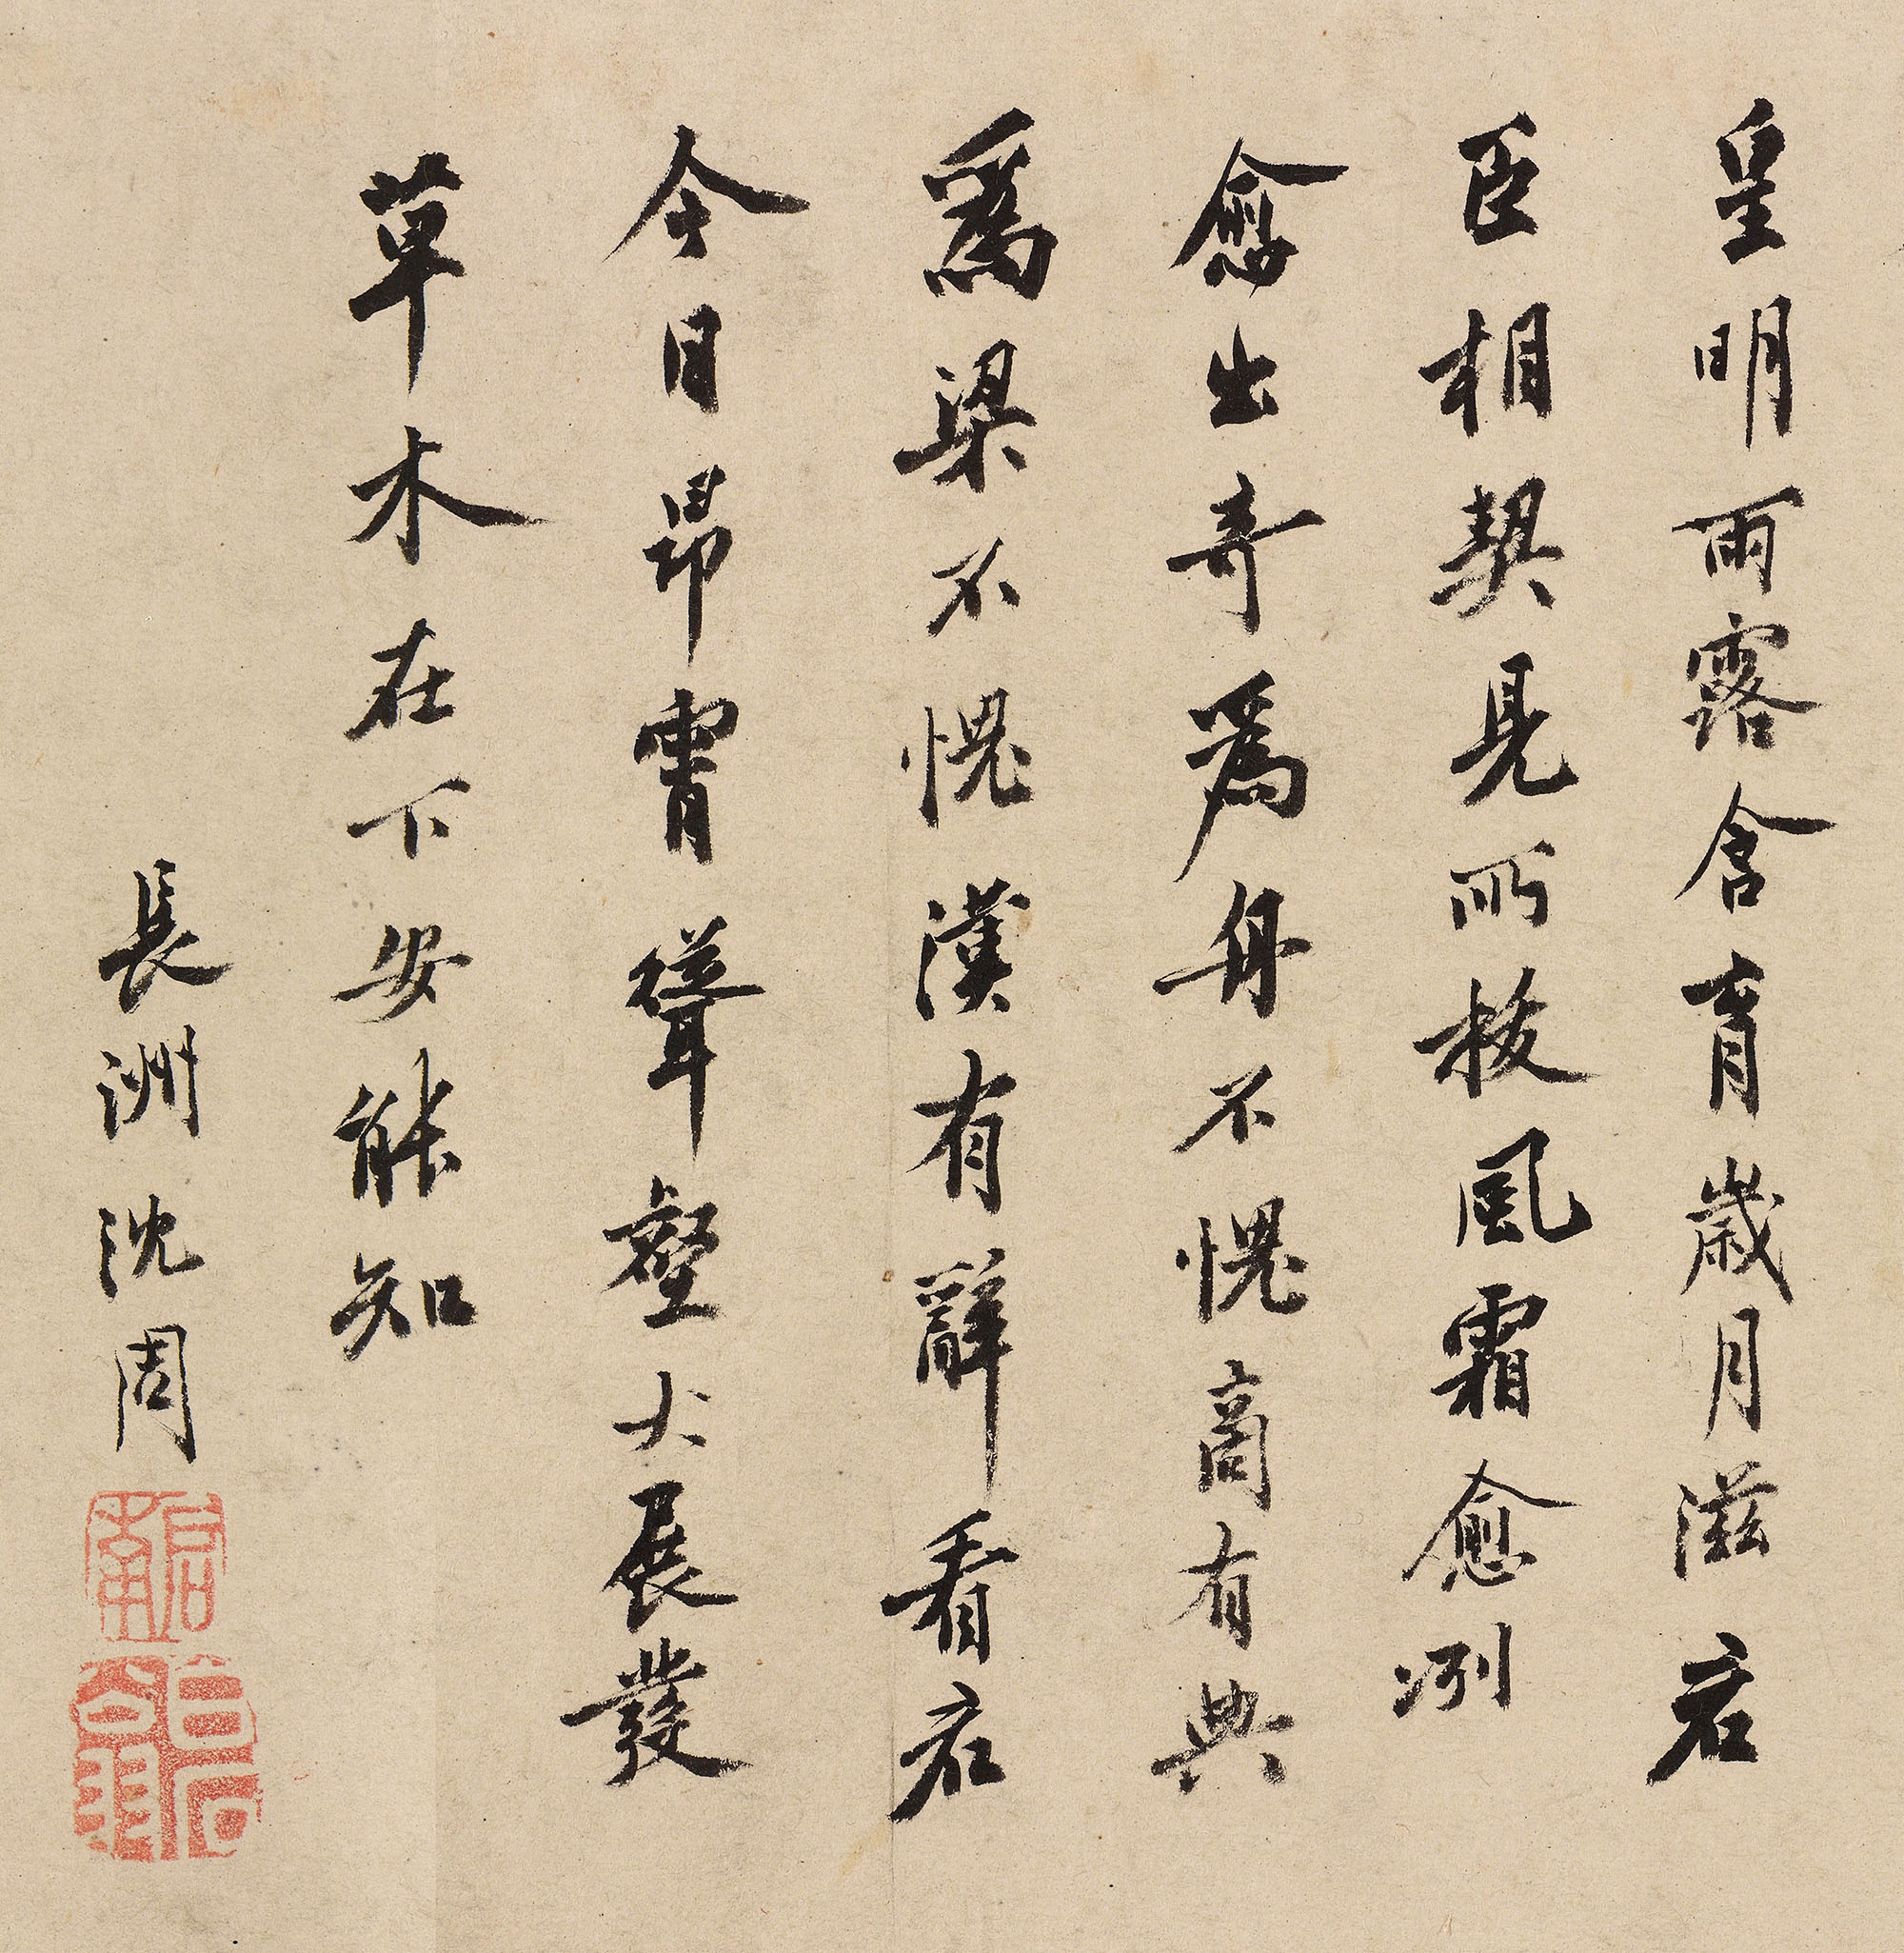 皇明雨露含育歲月滋君
臣相契見所拔風霜愈冽
愈出奇爲舟不愧商有典
爲梁不愧漢有辭看君
今日昂霄聳壑大展發
草木在下安能知
長洲沈周
啓南
白石翁